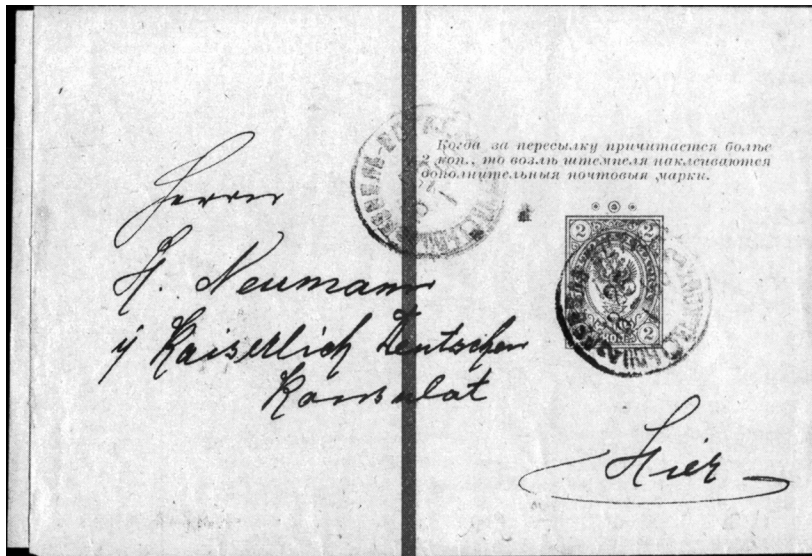 Когда за пересылку причитается болѣе
2 коп., то возлѣ штемпеля наклеиваются
дополнительныя почтовыя марки.
2 2
2
Herrn
H. Neumann
Kaiserlich Deutschen
Konsulat
Hier